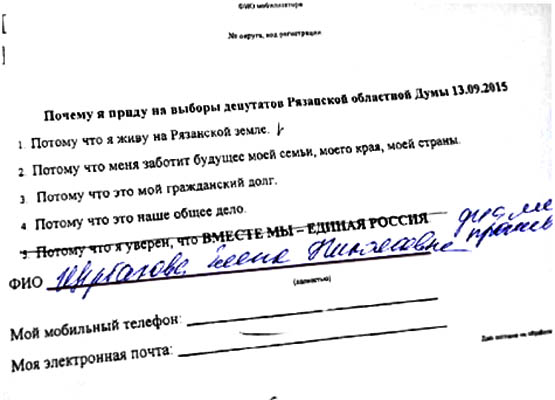 ФИО мобилизатора
№ округа, код регистрации
Почему я приду на выборы депутатов Рязанской областной Думы 13.09.2015
1. Потому что я живу на Рязанской земле.
2. Потому что меня заботит будущее моей семьи, моего края, моей страны.
3. Потому что это мой гражданский долг.
4 Потому что это наше общее дело.
5. Потому что я уверен, что ВМЕСТЕ МЫ – ЕДИНАЯ РОССИЯ
ФИО Елена Николаевна
(полностью)
Мой мобильный телефон:
Моя электронная почта: